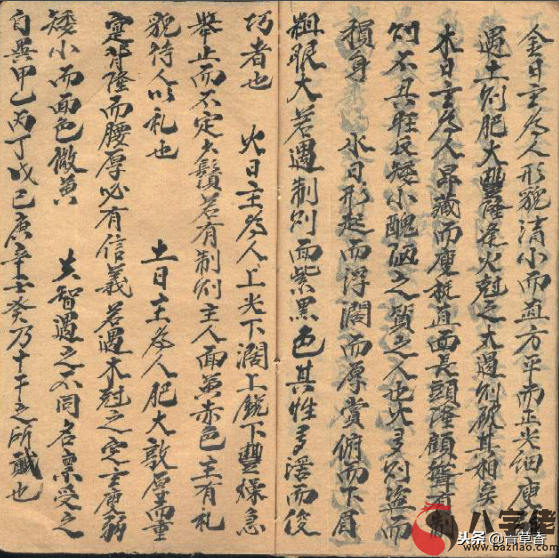 金日主為人形貌清小而直方平而正光細瘦
遇土則肥大豐隆逢火尅之太過則破其相矣
木日主為人昻藏而瘦挺直面長頭隆顧聳有制
則不其旺反矮小醜陋之質之人也火多則
損身 水日形起而浮濶而厚賞俯而下身
粗眼大若遇制則面紫黑色其性多滛而俊
巧者也 火日主為人上尖下濶上銳下豐燥急
舉止而不定大鬚若有制則主人面黃赤色主有礼
貌待人以礼也 土日主為人肥大敦厚而重
寔背隆而腰厚必有信義若遇木尅之定主瘦弱
矮小而面色微黃 夫智遇之不同各稟受之
自異甲乙丙丁戊己庚辛壬癸乃十干之所識也
八字佬
www.bazilao.com
头条 @青草香